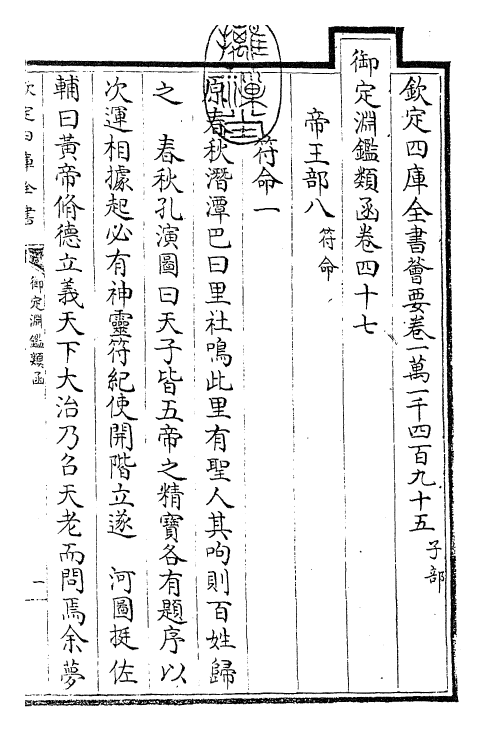 欽定四庫全書薈要卷一萬一千四百九十五 子部
御定淵鑑類函卷四十七
帝王部八 符命
符命一
原春秋潛潭巴曰里社鳴此里有聖人其呴則百姓歸
之 春秋孔演圖曰天子皆五帝之精寶各有題序以
次運相據起必有神靈符紀使開階立遂 河圖挺佐
輔曰黃帝脩德立義天下大治乃召天老而問焉余夢
欽定四庫全書
御定淵鑑類函
一